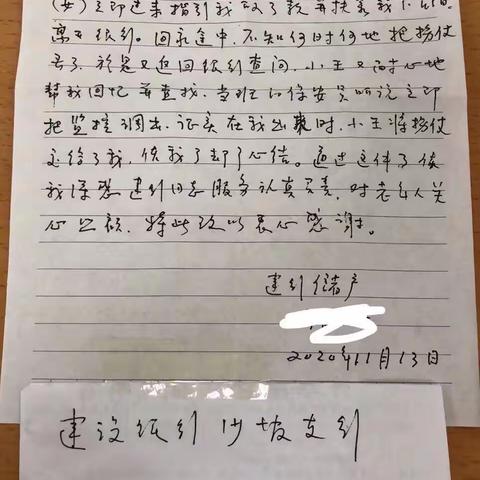 (女)立即过来指引我取了款并扶着我
离开银行。回家途中，不知何时何地把拐仗
丢了，于是又返回银行查问，小王又耐心地
帮我回忆并查找，当班的保安员听说立即
把监控调出，证实在我出来时，小王将拐仗
交给了我，使我了却了心结。通过这件事后
我深感建行同志服务认真负责，对老年人关
心照顾，特此致以衷心感谢。
建行储户
2020年11月13日
建设银行沙坡支行